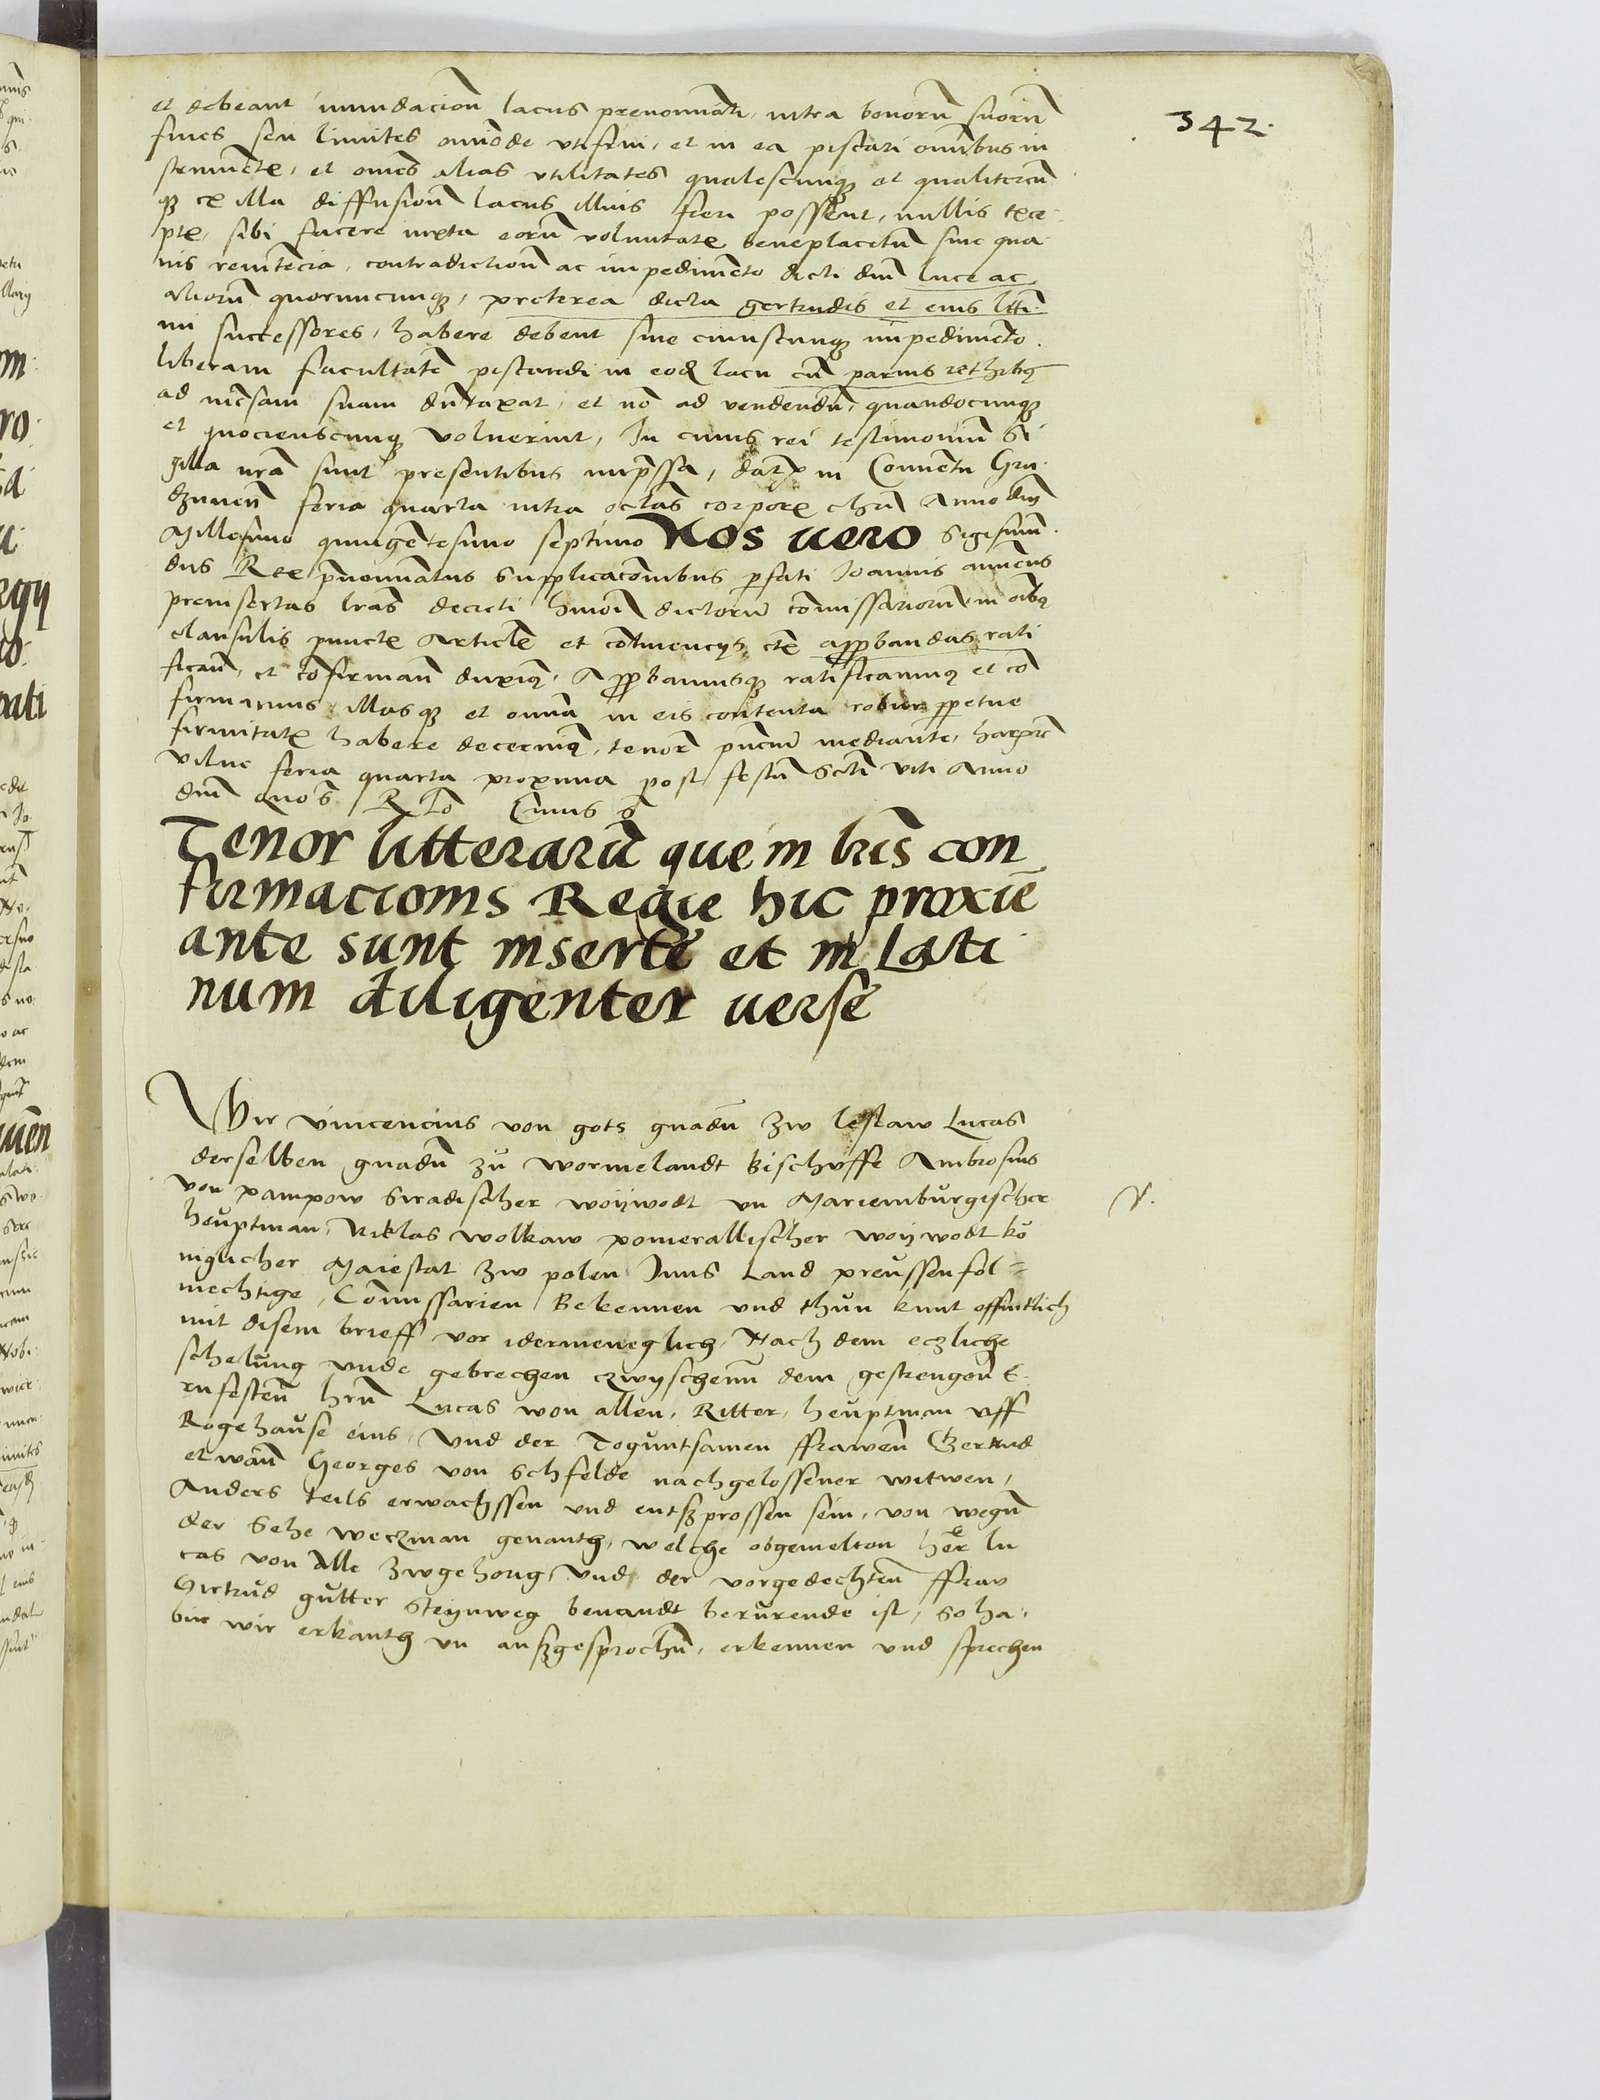 342.
et debeant inundacionē lacus prenominati, intra bonorū suorū
fines seu limites omīode vti frui, et in ea piscari omībus in
strumētꝭ, et omēs alias vtilitates qualescunqꝫ et qualitercū
qꝫ ex illa diffusionē lacus illius fieri possent, nullis exce-
ptꝭ, sibi facere iuxta eorū voluntatē beneplacitū sine qua-
uis renitēcia, contradictionē ac impedimēto dicti dnī luce ac
aliorū quorumcunqꝫ, preterea dicta gertrudis et eius ltti
mi successores, habere debent sine cuiuscunqꝫ impedimēto
liberam facultatē piscandi in eodē lacu cū paruis rethibꝫ
ad mēsam suam dūtaxat, et nō ad vendendū, quandocunqꝫ
et quocienscunqꝫ voluerint, In cuius rei testimoniū Si
gilla nrā sunt presentibus imp̄ssa, datꝭ in Conuētu Gru
dzuneñ feria quarta intra octās corporꝭ chrī Anno dnī
Millesimo quingētesimo septimo Nos uero Sigismū
dus Rex p̄nominatus supplicacōnibus p̄fati Ioannis annuēns
preinsertas lrās decreti hmōi dictorū cōmissariorū in oībꝫ
clausulis punctꝭ Articlꝭ et cōtinencijs, etꝭ approbandas rati
ficanð, et cōfirmanð duximꝫ, Approbamusqꝫ ratificamuꝫ et cō
firmamus illasqꝫ et omnia in eis contenta robur ppetue
firmitatꝭ habere decernimꝫ, tenorē pn̄cium mediante, harꝫ
vilne feria quarta proxima post festū Sctī viti Anno
dnī quo s̄ R Io Cuius s̄
Tenor litterarū que in lris con
firmacionis Regie hic proxiē
ante sunt inserte et in Lati
num diligenter uerse
Wir vincencius von gots gnadn̄ zw leslaw Lucas
derselben gnadn̄ zu wormelandt Bischoffe Ambrosius
von pampow Siradischer woijwodt vn Mariemburgischer
heuptman, Niklas wolkaw pomerallischer woijwodt ko
niglicher Maiestat zw polen Inns Land preussen fol=
mechtige, Cōmissarien Bekennen vnd thun kunt offintlich
mit disem brieff vor idermeneglich, Nach dem eczliche
schelung vnde gebrechen czwyschenn dem gestrengen E
rnfestenn hrn̄ Lucas von allen, Ritter, heuptman vff
Rogehause eins, vnd der Toguntsamen ffrawenn Gertrud
etwann Georges von Schfelde nachgelossener witwen,
Anders teils erwachssen vnd entsprossen sein, von wegn̄
der Sehe weczman genanth, welche obgemelten her lu
cas von Alle zwgehorig, vnd der vorgedechten ffraw
Girtrud gutter Steynweg benandt berurende ist, So ha
bin wir erkanth vn aussgesprochn̄, erkennen vnd sprechen